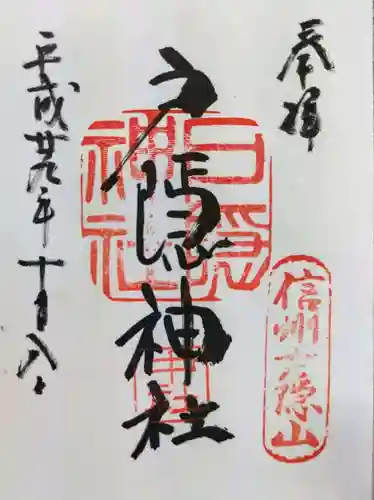 奉拝
信州戸隠山
戸隠神社
戸隠
神社
平成廿九年十月八日